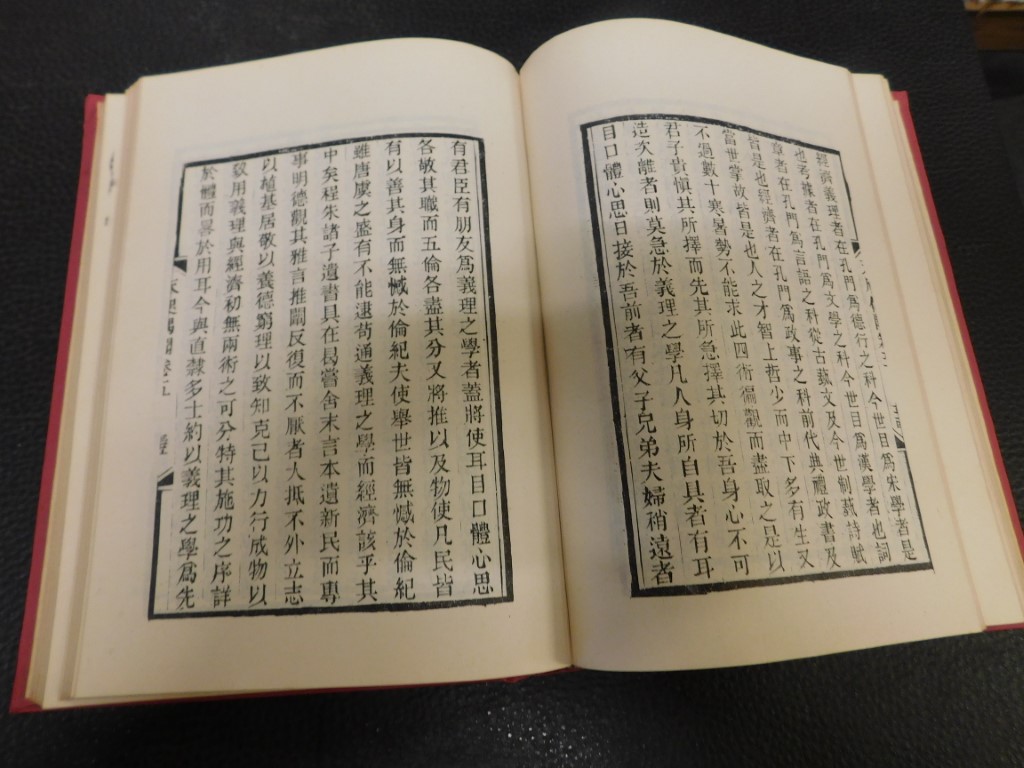 經濟義理者在孔門為德行之科今世目為宋學者是
也考據者在孔門爲文學之科今世目爲漢學者也詞
章者在孔門爲言語之科從古藝文及今世制義詩賦
皆是也經濟者在孔門爲政事之科前代典禮政書及
當世掌故皆是也人之才智上哲少而中下多有生又
不過數十寒暑勢不能求此四術徧觀而盡取之是以
君子貴慎其所擇而先其所急擇其切於吾身心不可
造次離者則莫急於義理之學凡人身所自具者有耳
目口體心思日接於吾前者有父子兄弟夫婦稍遠者
有君臣有朋友爲義理之學者蓋將使耳目口體心思
各敬其職而五倫各盡其分又將推以及物使凡民皆
有以善其身而無憾於倫紀夫使舉世皆無憾於倫紀
雖唐虞之盛有不能逮苟通義理之學而經濟該乎其
中矣程朱諸子遺書具在曷嘗舍末言本遺新民而專
事明德觀其雅言推闡反復而不厭者人抵不外立志
以植基居敬以養德窮理以致知克己以力行成物以
致用義理與經濟初無兩術之可分特其施功之序詳
於體而畧於用耳今與直隸多士約以義理之學爲先